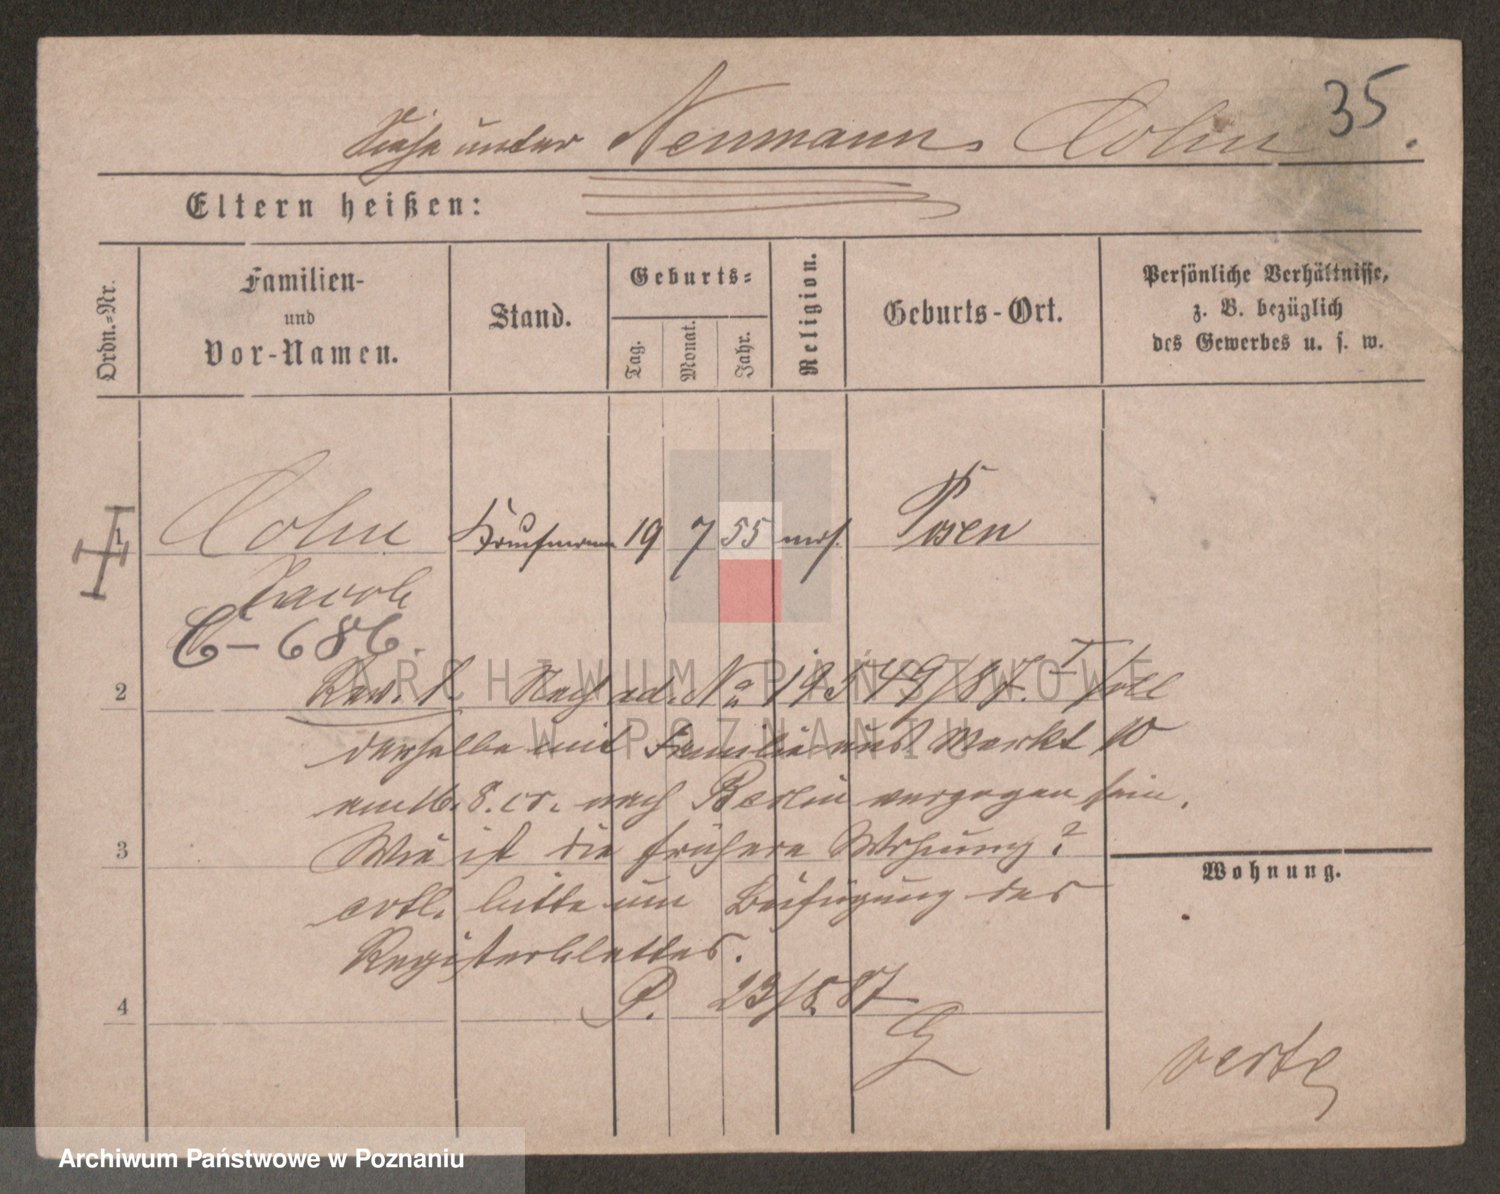 35
Siehe unter Neumann, Cohn.
Eltern heißen:
Ordn.-Nr.
Familien-
und
Vor-Namen.
Stand.
Geburts-
Tag.
Monat.
Jahr.
Religion.
Geburts-Ort.
Persönliche Verhältnisse,
z. B. bezüglich
des Gewerbes u. s. w.
1 Cohn Kaufmann 19 7 55 mos. Posen
Jacob
C-686.
ARCHIWUM PAŃSTWOWE
W POZNANIU
2
Rev. I. Nach ad. No 19549/87. I soll
derselbe mit Familie aus Markt 10
am 16. 8. cr. nach Berlin verzogen sein.
3
Wie ist die frühere Wohnung?
evtl. bitte um Beifügung des
Registerblattes.
4
P. 23/8 87
Wohnung.
verte
Archiwum Państwowe w Poznaniu